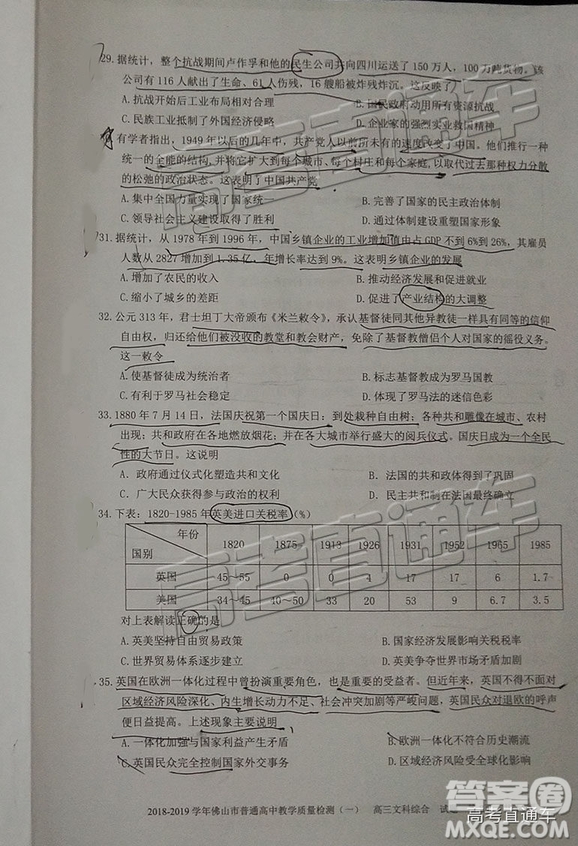 29. 据统计，整个抗战期间卢作孚和他的民生公司共向四川运送了 150 万人，100 万吨货物，该
公司有 116 人献出了生命、61 人伤残，16 艘船被炸残炸沉。这反映了
A. 抗战开始后工业布局相对合理 B. 国民政府动用所有资源抗战
C. 民族工业摆脱了外国经济侵略 D. 企业家的强烈实业救国精神
有学者指出，1949 年以后的几年中，共产党以前所未有的速度改变了中国。他们推行一种
统一的全能的结构，并将它扩大到每个城市、每个村庄和每个家庭，以取代过去那种权力分散
的松弛的政治状态。这表明了中国共产党
A. 集中全国力量实现了国家统一 B. 完善了国家的民主政治体制
C. 领导社会主义建设取得了胜利 D. 通过体制建设重塑国家形象
31. 据统计，从 1978 年到 1996 年，中国乡镇企业的工业增加值由占 GDP 不到 6%到 26%，其雇员
人数从 2827 增加到 1.35 亿，年增长率达到 9%。这表明乡镇企业的发展
A. 增加了农民的收入 B. 推动经济发展和促进就业
C. 缩小了城乡的差距 D. 促进了产业结构的大调整
32. 公元 313 年，君士坦丁大帝颁布《米兰敕令》，承认基督徒同其他异教徒一样具有同等的信仰
自由权，归还给他们被没收的教堂和教会财产，免除了基督教僧侣个人对国家的徭役义务。
这一敕令
A. 使基督徒成为统治者 B. 标志基督教成为罗马国教
C. 有利于罗马社会稳定 D. 体现了罗马法的迷信色彩
33. 1880 年 7 月 14 日，法国庆祝第一个国庆日：到处栽种自由树；各种共和雕像在城市、农村
出现；共和政府在各地燃放烟花；并在各大城市举行盛大的阅兵仪式。国庆日成为一个全民
性的大节日。这说明
A. 政府通过仪式化塑造共和文化 B. 法国的共和政体得到了巩固
C. 广大民众获得参与政治的权利 D. 民主与共和制从法国开始
34. 下表：1820-1985 年英美进口关税率（%）
年份 国别 1820 1875 1913 1926 1931 1952 1965 1985
英国 45~55 0 0 4 17 17 6 1.7
美国 34~45 10~50 33 20 53 9 6.7 3.5
对上表解读正确的是
A. 英美坚持自由贸易政策 B. 国家经济发展影响关税税率
C. 世界贸易体系逐步建立 D. 英美争夺世界市场加剧
35. 英国在欧洲一体化过程中曾扮演重要角色，也是重要的受益者。但近年来，英国不得不面对
区域经济风险深化、内生增长动力不足、社会冲突加剧等严峻问题，英国民众对退欧的呼声
便日益提高。上述现象主要说明
A. 一体化加强与国家利益产生矛盾 B. 欧洲一体化不符合历史潮流
C. 英国民众完全控制国家外交政策
2018-2019 学年佛山市普通高中教学质量检测（一） 高三文科综合 试
高考直通车
高考直通车
高考直通车
答案圈